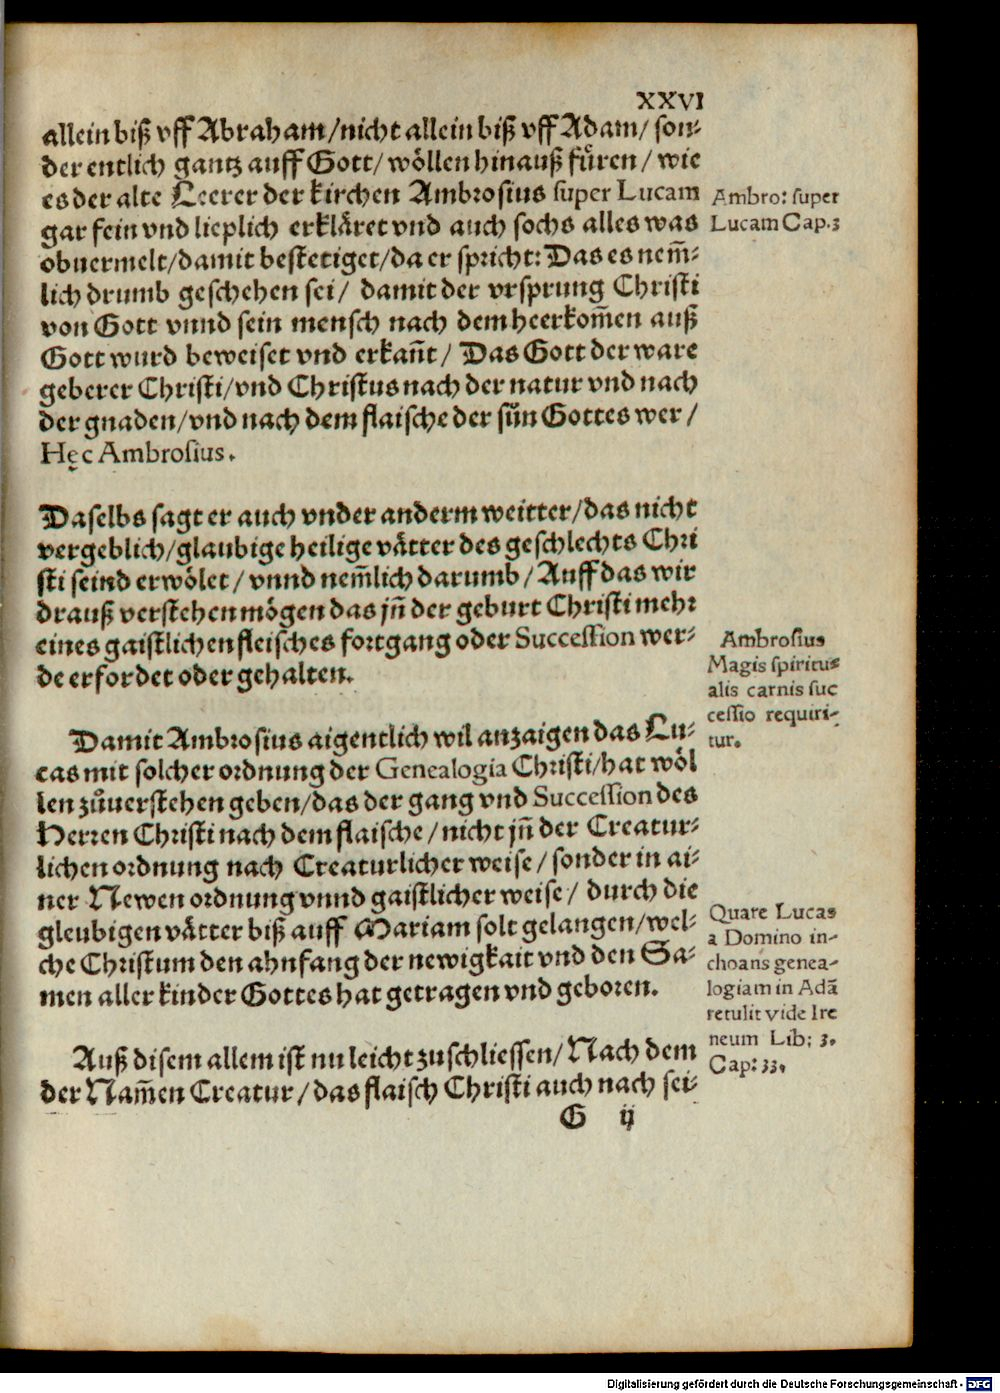 XXVI
allein biß vff Abraham/nicht allein biß vff Adam/ son⸗
der entlich gantz auff Gott/ wöllen hinauß füren/ wie
es der alte Leerer der kirchen Ambrosius super Lucam
gar fein vnd lieplich erkläret vnd auch sochs alles was
obuermelt/damit bestetiget/da er spricht: Das es nem̃⸗
lich drumb geschehen sei/ damit der vrsprung Christi
von Gott vnnd sein mensch nach dem heerkom̃en auß
Gott wurd beweiset vnd erkañt/ Das Gott der ware
geberer Christi/vnd Christus nach der natur vnd nach
der gnaden/vnd nach dem flaische der sůn Gottes wer/
Hęc Ambrosius.
Ambro: super
Lucam Cap.3
Daselbs sagt er auch vnder anderm weitter/das nicht
vergeblich/glaubige heilige vätter des geschlechts Chri
sti seind erwölet/ vnnd nem̃lich darumb/ Auff das wir
drauß verstehen mögen das jñ der geburt Christi mehr
eines gaistlichen fleisches fortgang oder Succession wer⸗
de erfordet oder gehalten.
Ambrosius
Magis spiritu⸗
alis carnis suc
cessio requiri⸗
tur.
Damit Ambrosius aigentlich wil anzaigen das Lu⸗
cas mit solcher ordnung der Genealogia Christi/hat wöl
len zůuerstehen geben/das der gang vnd Succession des
Herren Christi nach dem flaische/nicht jñ der Creatur⸗
lichen ordnung nach Creaturlicher weise/sonder in ai⸗
ner Newen ordnung vnnd gaistlicher weise/ durch die
gleubigen vätter biß auff Mariam solt gelangen/wel⸗
che Christum den ahnfang der newigkait vnd den Sa⸗
men aller kinder Gottes hat getragen vnd geboren.
Quare Lucas
a Domino in⸗
choans genea⸗
logiam in Adã
retulit vide Ire
neum Lib: 3.
Cap: 33.
Auß disem allem ist nu leicht zuschliessen/Nach dem
der Nam̃en Creatur/das flaisch Christi auch nach sei⸗
G ij
Digitalisierung gefördert durch die Deutsche Forschungsgemeinschaft - DFG